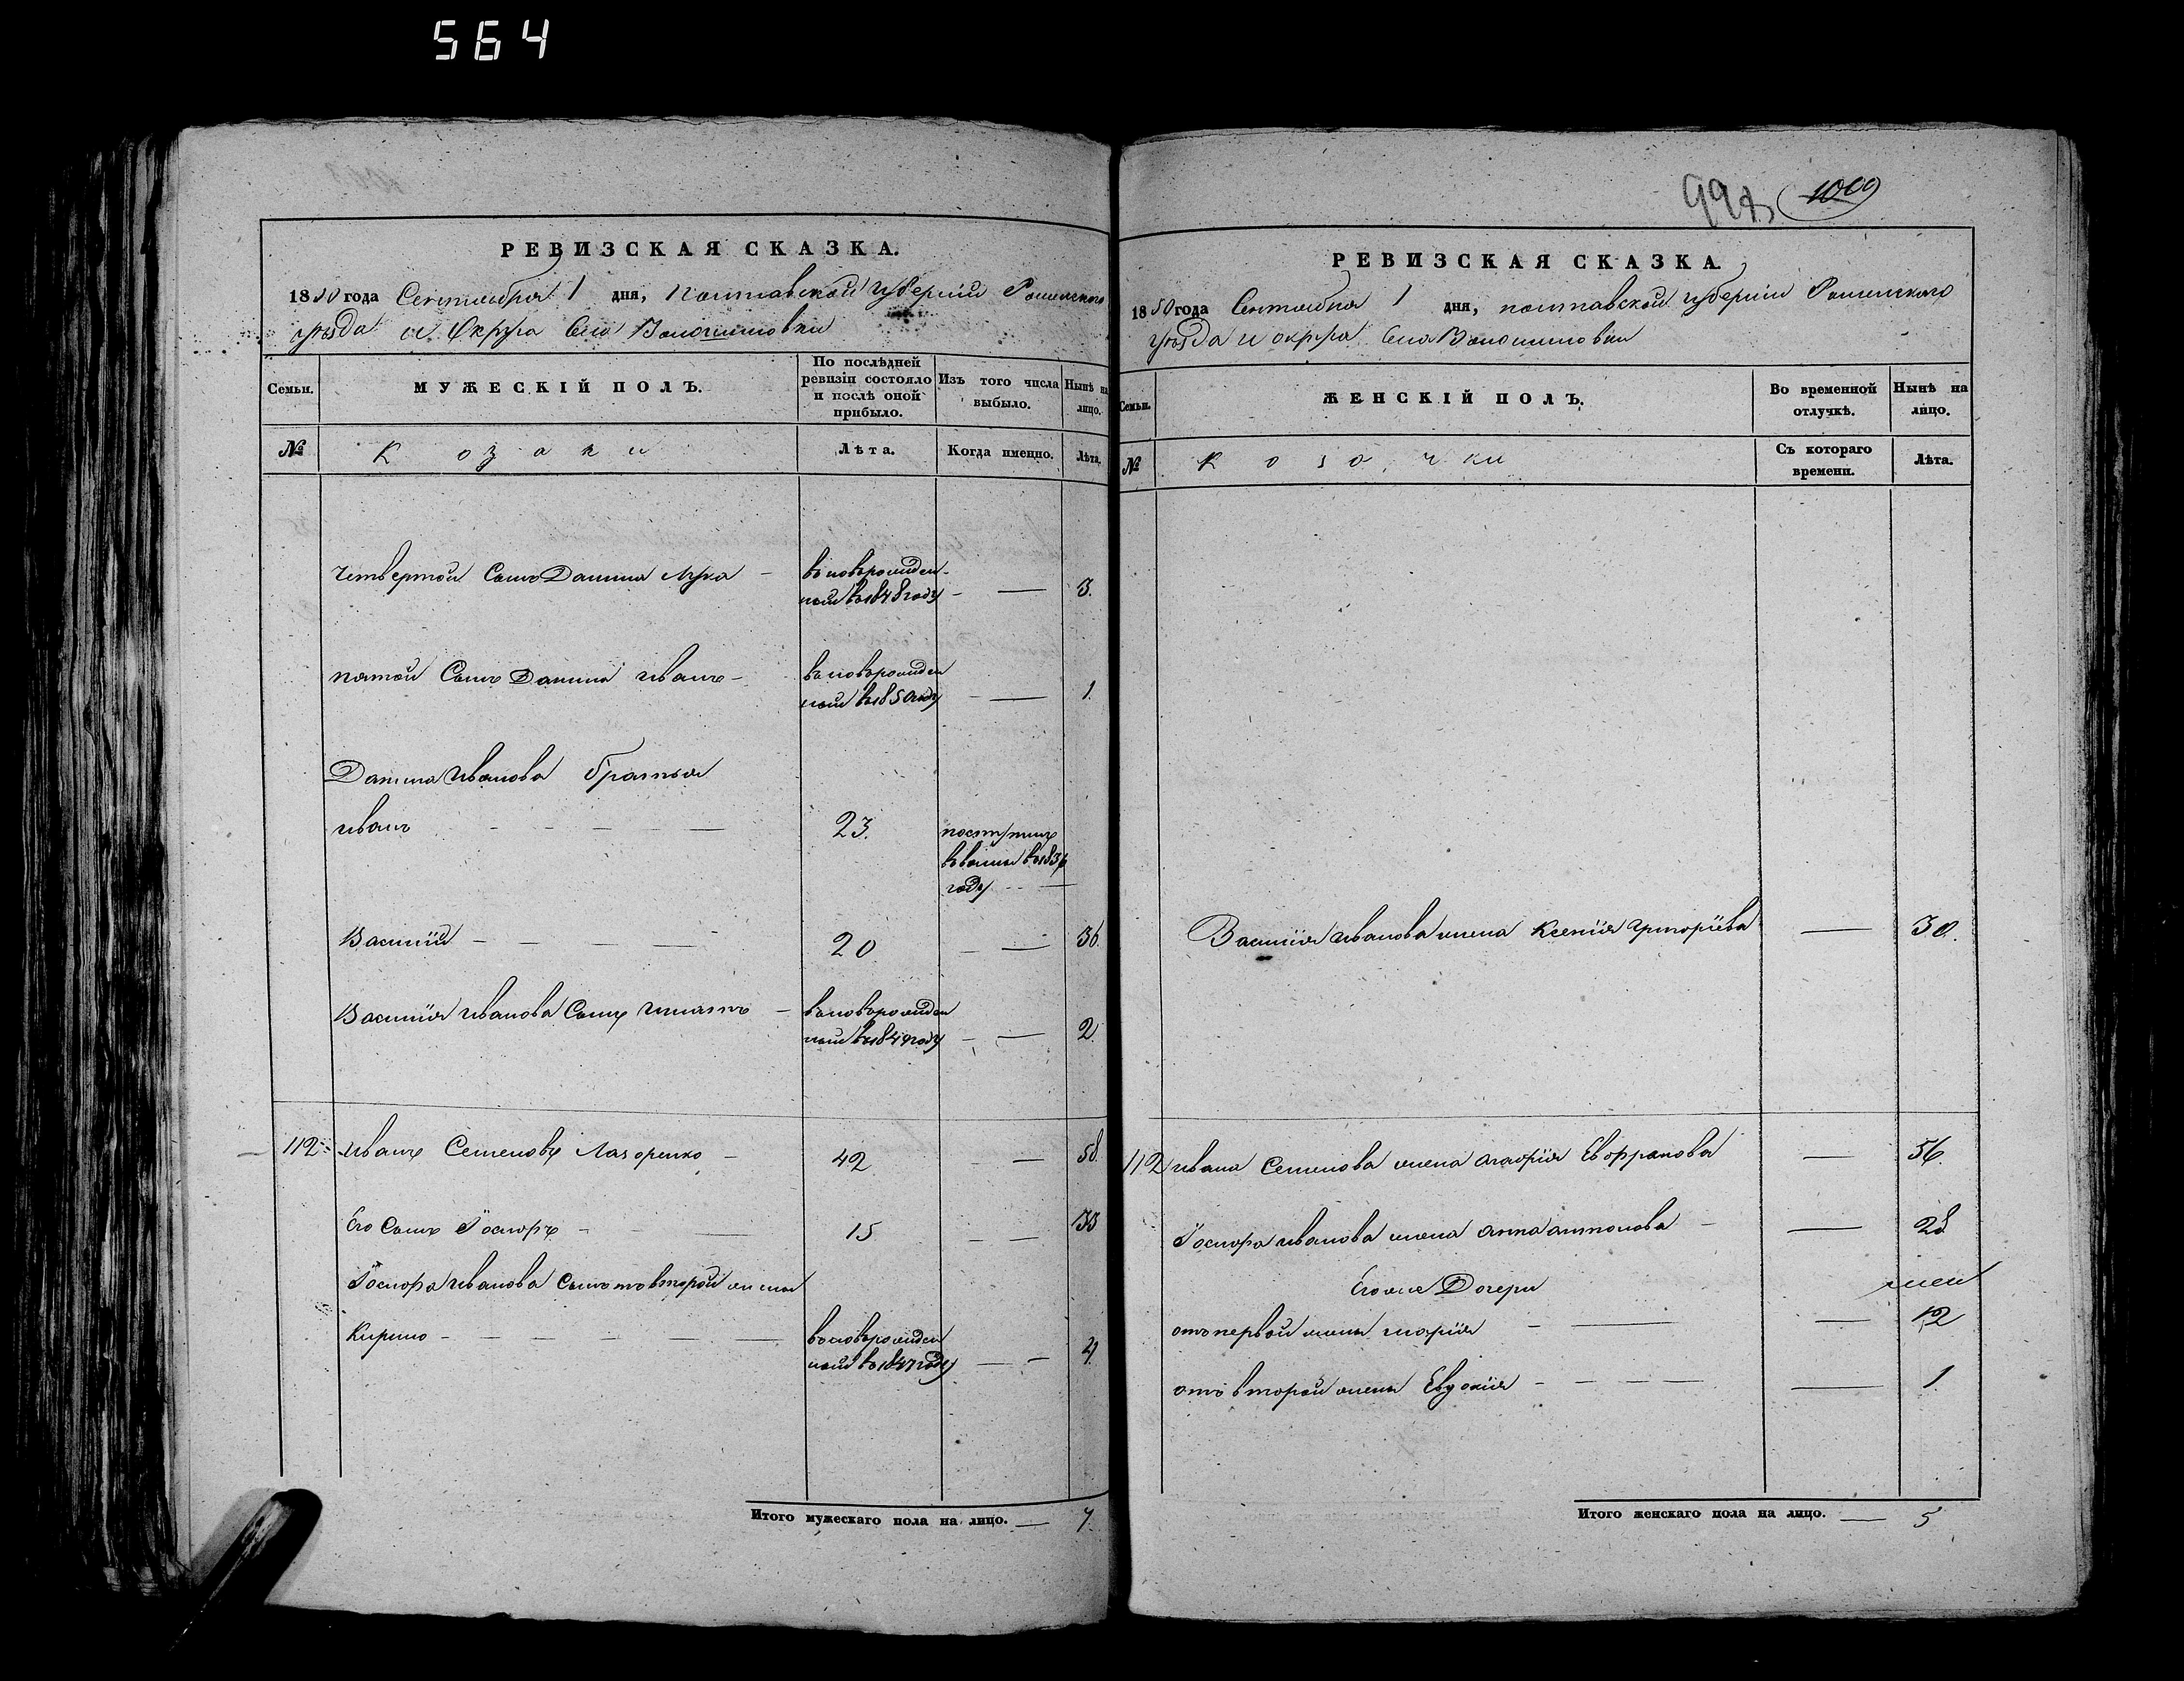 564
РЕВИЗСКАЯ СКАЗКА.
1850 года Сентября 1 дня, Полтавской губернiи Роменского
уѣзда и Округа Села Волошиновки
Семьи.
МУЖЕСКIЙ ПОЛЪ.
По послѣдней ревизiи состояло и послѣ оной прибыло.
Изъ того числа выбыло.
Нынѣ на лицо.
№
Козаки
Лѣта.
Когда именно.
Лѣта.
Четвертой Сынъ Данила Лука - вновьрожден-
ный въ 1848 году - — 3.
пятой Сынъ Данила иванъ - вновьрожден
ный въ 1850 году — 1.
Данила Иванова братья
иванъ 23. поступилъ
въ 183
году
Василiй 20 — 36.
Василiя иванова Сынъ игнатъ - вновьрожден
ный въ 1849 году — 2.
112 иванъ Семеновъ Лазоренко - 42 — 58.
Его Сынъ Iосифъ - 15 — 33
Iосифа иванова Сынъ отвторой жены
Кирило - вновьрожден
ный въ 1847 году — 4.
Итого мужескаго пола на лицо. — 7.
997 1009
РЕВИЗСКАЯ СКАЗКА.
1850 года Сентября 1 дня, полтавской губернiи Роменского
уѣзда и округа Села Волошиновки
Семьи.
ЖЕНСКIЙ ПОЛЪ.
Во временной отлучкѣ.
Нынѣ на лицо.
№
Козачки
Съ котораго времени.
Лѣта.
Василiя иванова жена Ксенiя григорiева — 30.
112 ивана Семенова жена агафiя — 56.
Iосифа иванова жена анна антонова — 28
Егоже Дочери
отъ первой жены марiя — 12
отъ второй жены Евдокiя — 1.
Итого женскаго пола на лицо. — 5